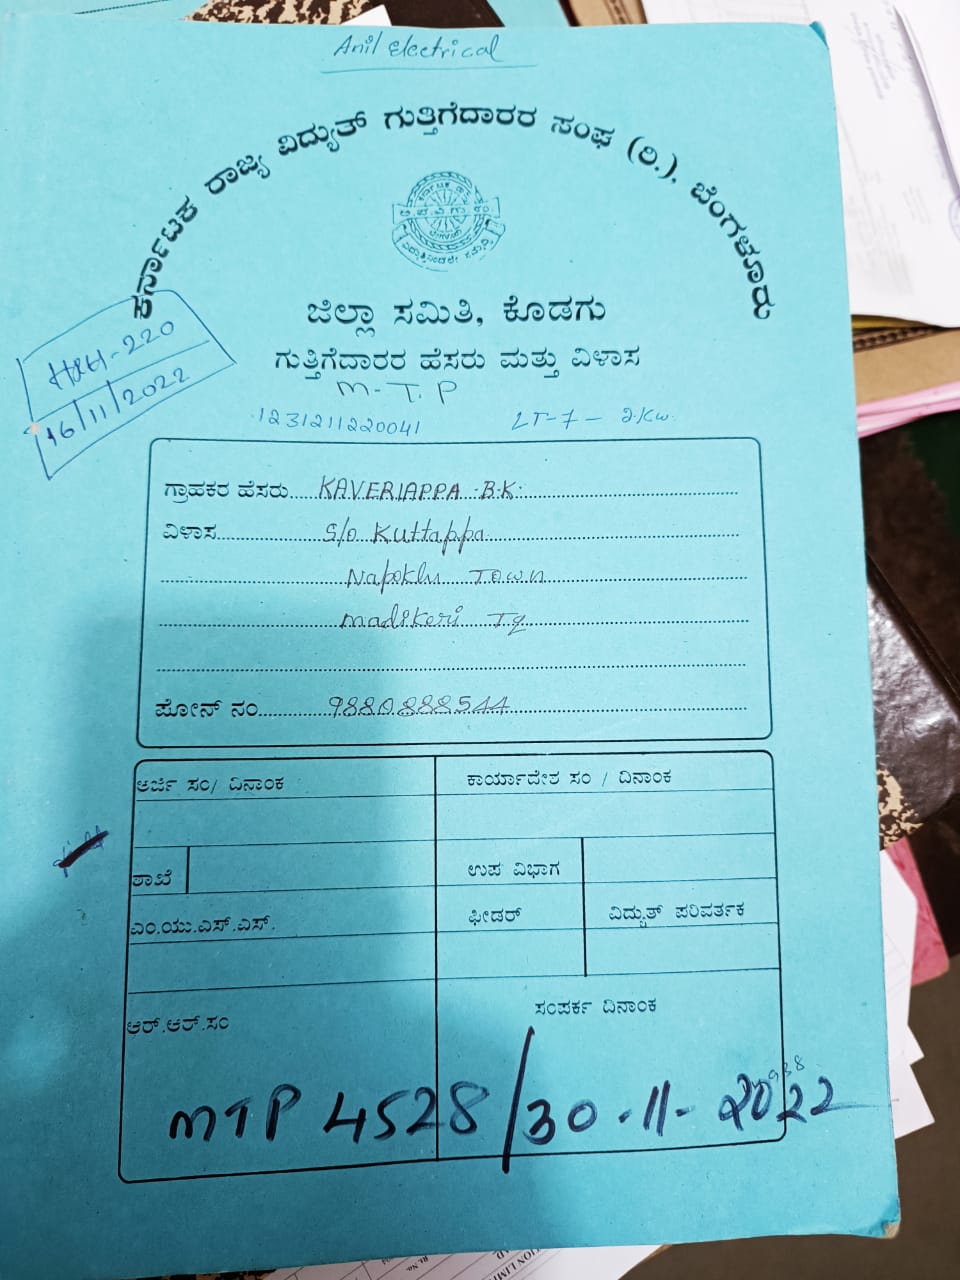 Anil Electrical
ಕರ್ನಾಟಕ ರಾಜ್ಯ ವಿದ್ಯುತ್ ಗುತ್ತಿಗೆದಾರರ ಸಂಘ (ರಿ.), ಬೆಂಗಳೂರು
ಜಿಲ್ಲಾ ಸಮಿತಿ, ಕೊಡಗು
ಗುತ್ತಿಗೆದಾರರ ಹೆಸರು ಮತ್ತು ವಿಳಾಸ
-220
16/11/2022
M-T.P
1231211220041 LT-7-2.KW.
ಗ್ರಾಹಕರ ಹೆಸರು KAVERIAPPA B.K.
ವಿಳಾಸ S/o Kuttappa
Napoklu Town
Madikeri Tq
ಫೋನ್ ನಂ. 9880888544
ಅರ್ಜಿ ಸಂ/ ದಿನಾಂಕ ಕಾರ್ಯಾದೇಶ ಸಂ / ದಿನಾಂಕ
ಶಾಖೆ ಉಪ ವಿಭಾಗ
ಎಂ.ಯು.ಎಸ್.ಎಸ್. ಫೀಡರ್ ವಿದ್ಯುತ್ ಪರಿವರ್ತಕ
ಆರ್.ಆರ್.ಸಂ ಸಂಪರ್ಕ ದಿನಾಂಕ
MTP 4528/30-11-2022